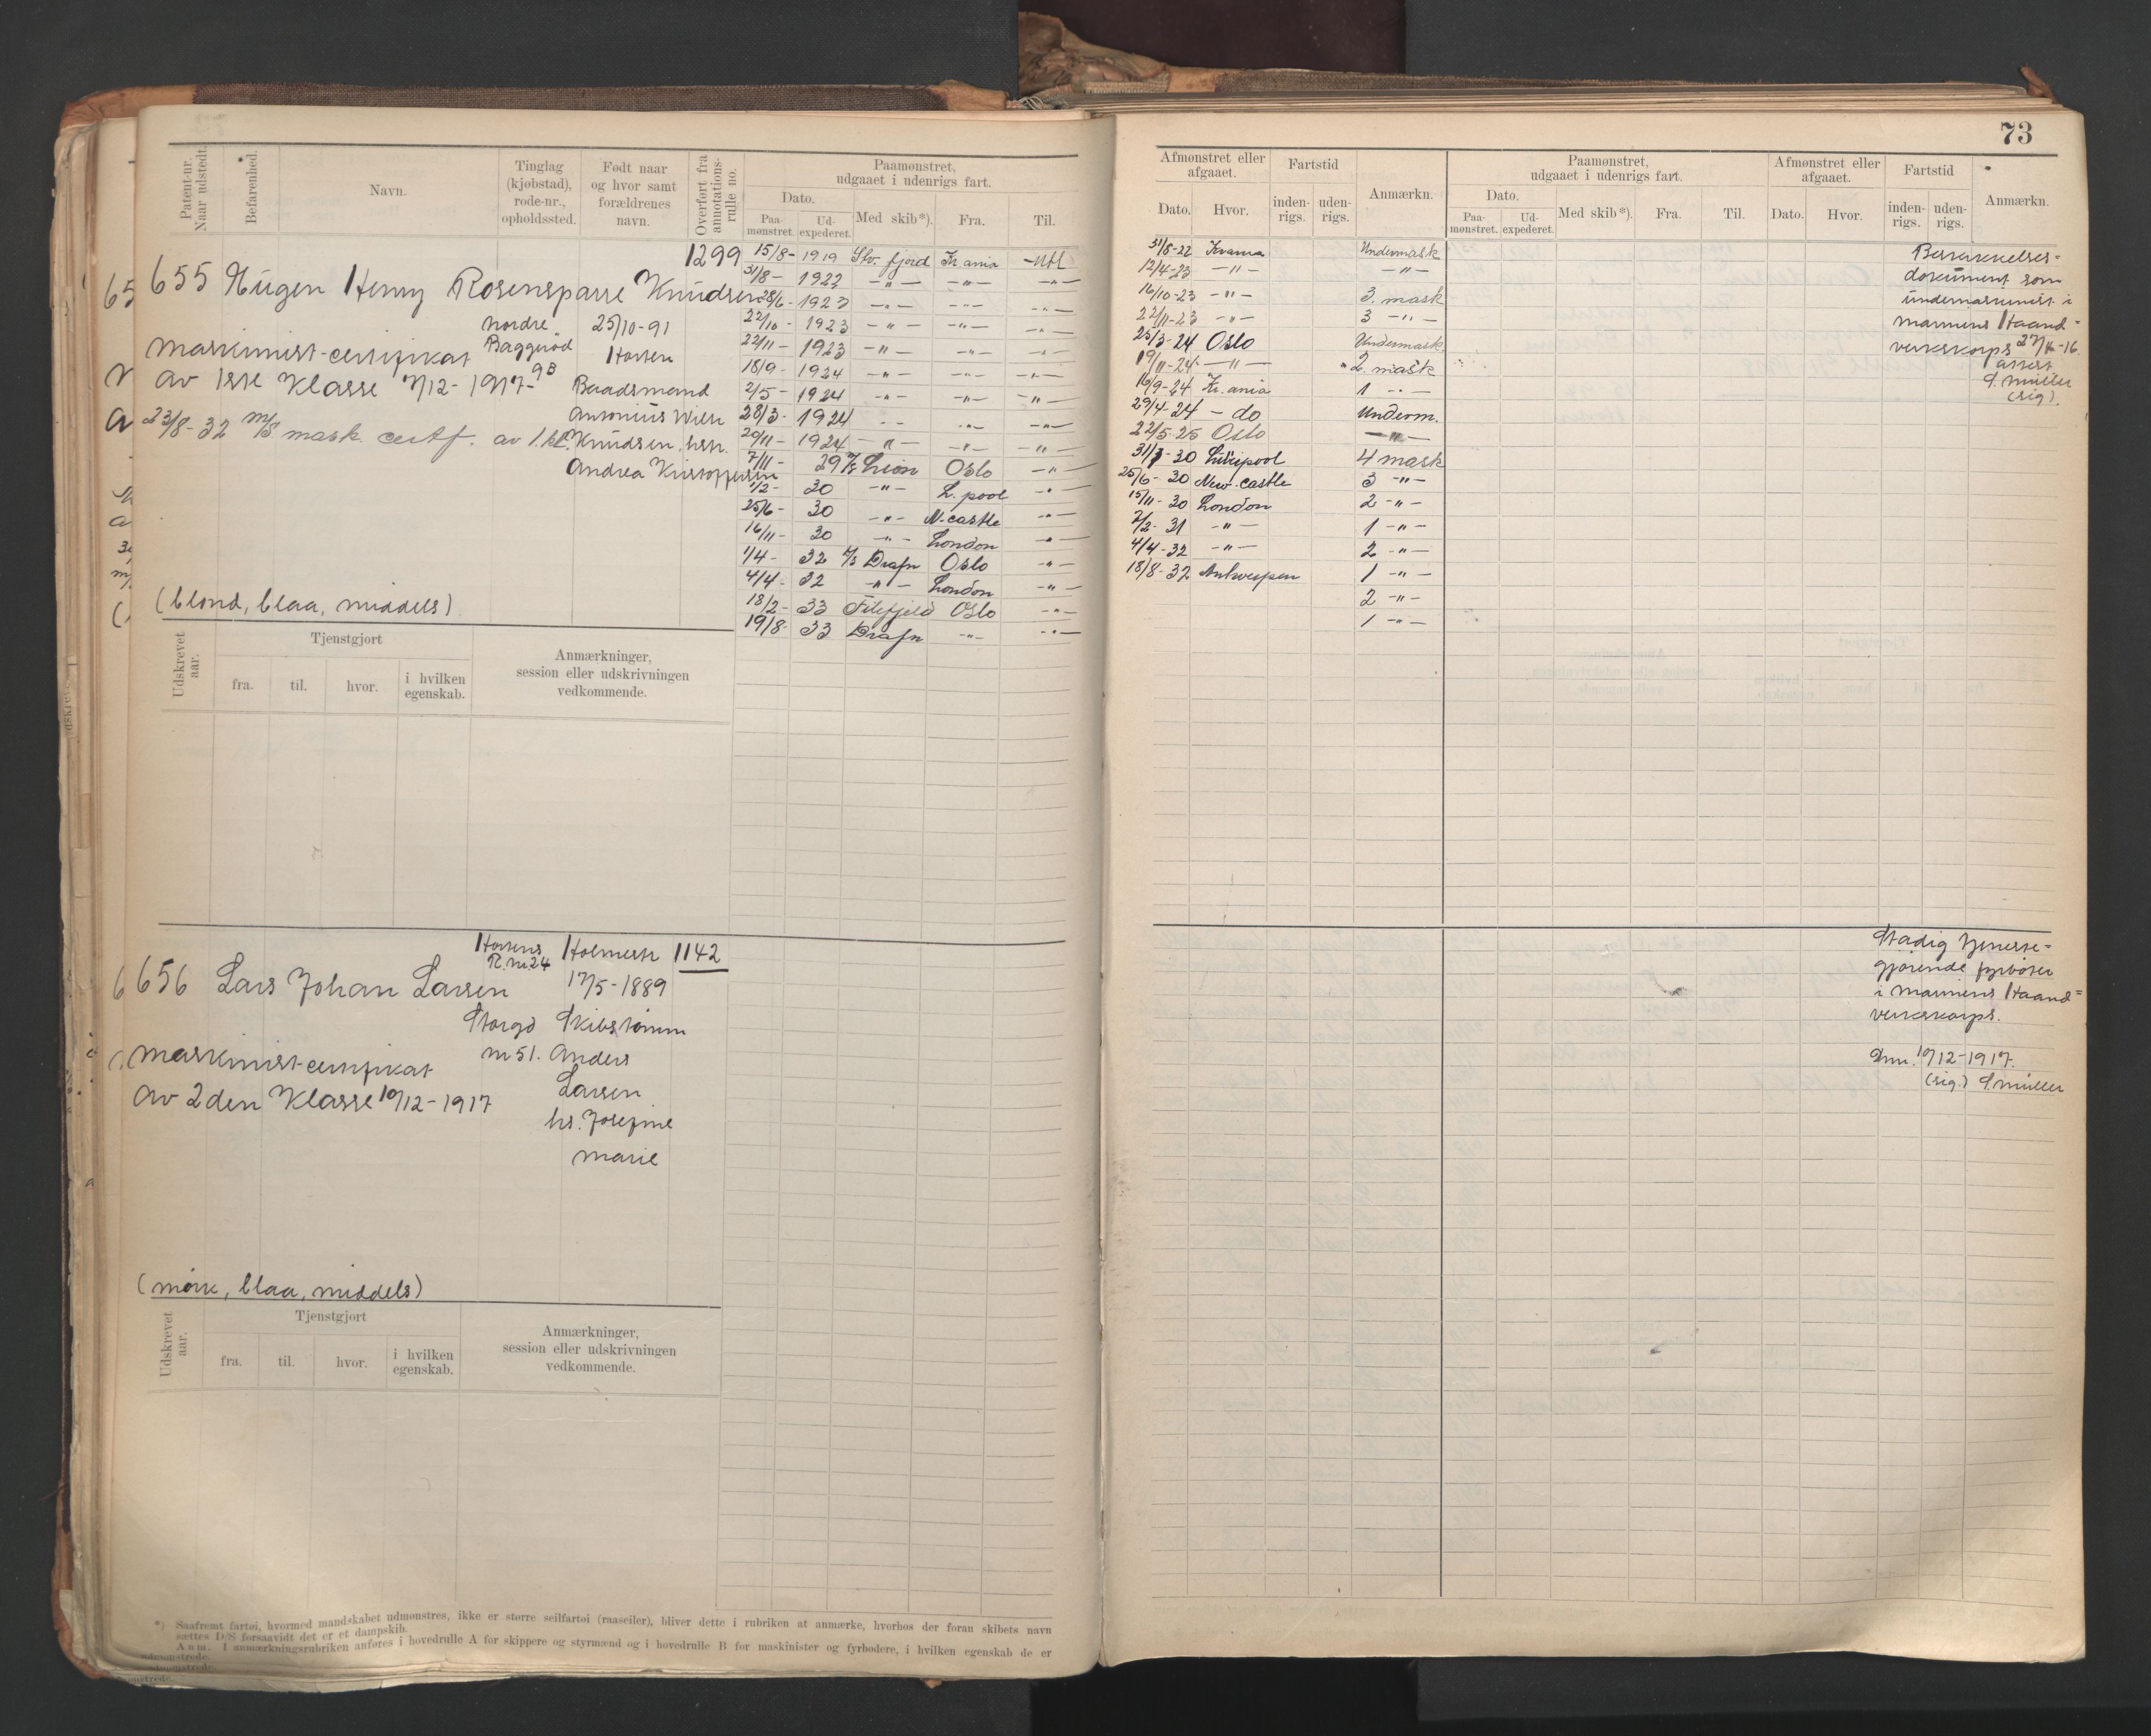 73
Patent-nr. Naar udstedt.
Befarenhed.
Navn.
Tinglag (kjøbstad), rode-nr., opholdssted.
Født naar og hvor samt forældrenes navn.
Overført fra annotations-rulle no.
Paamønstret, udgaaet i udenrigs fart.
Dato.
Paa-mønstret.
Ud-expederet.
Med skib*).
Fra.
Til.
Afmønstret eller afgaaet.
Dato.
Hvor.
Fartstid
inden-rigs.
uden-rigs.
Anmærkn.
Paamønstret, udgaaet i udenrigs fart.
Dato.
Paa-mønstret.
Ud-expederet.
Med skib*).
Fra.
Til.
Afmønstret eller afgaaet.
Dato.
Hvor.
Fartstid
inden-rigs.
uden-rigs.
Anmærkn.
1299
655 Hugen Henry Rosensparre Knudsen
Nordre 25/10-91
Baggerød Horten
9B
Maskinist-certifikat
av 1ste Klasse 7/12-1917
Baadsmand
Antonius Wilh
23/8-32 M/S mask. certf. av 1.kl.
Knudsen, hstr.
Andrea Kristoffersen
(blond, blaa, middels)
15/8- 1919 Stv. fjord Kr.ania -Utl
31/8- 1922 -"- -"- -"-
28/6- 1923 -"- -"- -"-
22/10- 1923 -"- -"- -"-
22/11- 1923 -"- -"- -"-
18/9- 1924 -"- -"- -"-
2/5- 1924 -"- -"- -"-
28/3- 1924 -"- -"- -"-
20/11- 1924 -"- -"- -"-
7/11- 29 T/S Lion Oslo -"-
1/2- 30 -"- L.pool -"-
25/6- 30 -"- N.castle -"-
16/11- 30 -"- London -"-
1/4- 32 Drafn Oslo -"-
4/4- 32 -"- London -"-
18/2- 33 Filefjeld Oslo -"-
19/8- 33 Drafn -"- -"-
31/8-22 Kr.ania Undermask
12/4-23 -"- -"-
16/10-23 -"- 3. mask
22/11-23 -"- 3 -"-
25/3-24 Oslo Undermask.
19/11-24 -"- 2. mask
16/9-24 Kr.ania 1 -"-
29/4-24 - do Underm.
22/5-25 Oslo -"-
31/1-30 Liverpool 4 mask
25/6-30 New-castle 3 -"-
15/11-30 London 2 -"-
2/2-31 -"- 1 -"-
4/4-32 -"- 2 -"-
18/8-32 Antwerpen 1 -"-
2 -"-
1 -"-
Beskikkelses-
dokument som
undermaskinist i
Marinens Haand-
verkskorps
attest
S. Müller
(sig).
Udskrevet aar.
Tjenstgjort
fra.
til.
hvor.
i hvilken egenskab.
Anmærkninger, session eller udskrivningen vedkommende.
Hortens Holmestr 1142
R.nr.24
656 Lars Johan Larsen 17/5-1889
Storgd Skibstømm
nr 51. Anders
Maskinist-certifikat
Larsen
av 2den Klasse 10/12-1917
hs. Josefine
Marie
(mørk, blaa, middels)
Stadig tjeneste-
gjørende fyrbøter
i Marinens Haand-
verkskorps.
10/12-1917.
(sig.) S. Müller
Udskrevet aar.
Tjenstgjort
fra.
til.
hvor.
i hvilken egenskab.
Anmærkninger, session eller udskrivningen vedkommende.
*) Saafremt fartøi, hvormed mandskabet udmønstres, ikke er større seilfartøi (raaseiler), bliver dette i rubriken at anmærke, hvorhos der foran skibets navn
sættes D/S forsaavidt det er et dampskib.
Anm. I anmærkningsrubriken anføres i hovedrulle A for skippere og styrmænd og i hovedrulle B for maskinister og fyrbødere, i hvilken egenskab de er
udmønstrede.